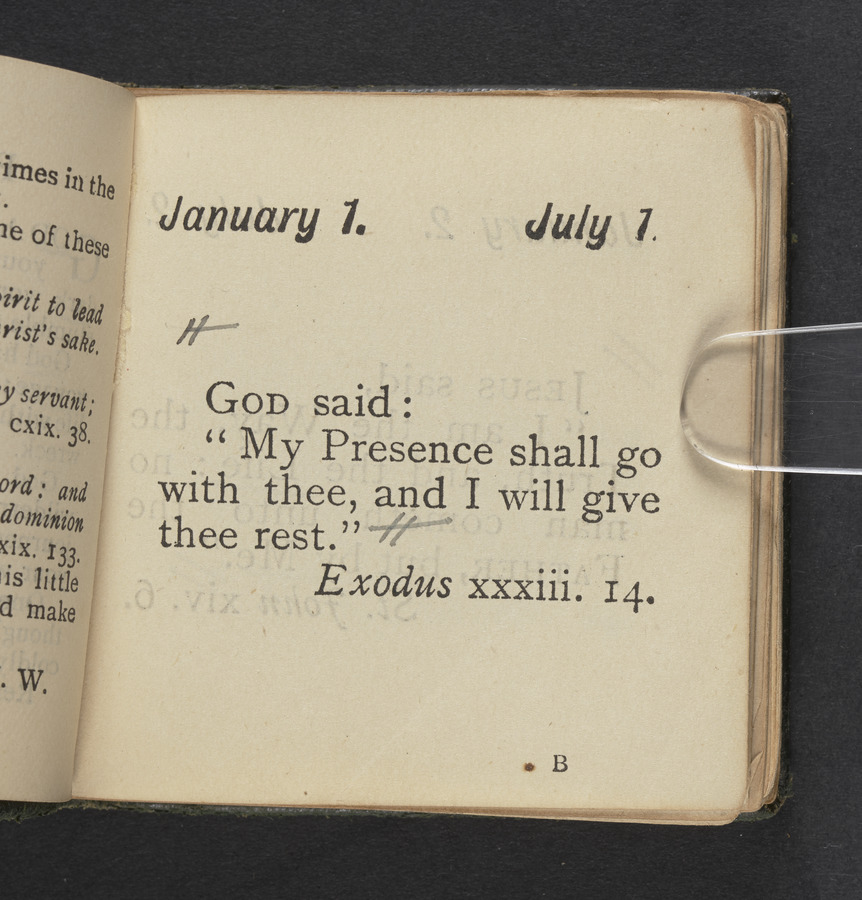 imes in the
ne of these
irit to lead
rist's sake.
y servant;
cxix. 38.
ord: and
dominion
xix. 133.
is little
d make
. W.
January 1. July 1.
GOD said:
“ My Presence shall go
with thee, and I will give
thee rest.”
Exodus xxxiii. 14.
B